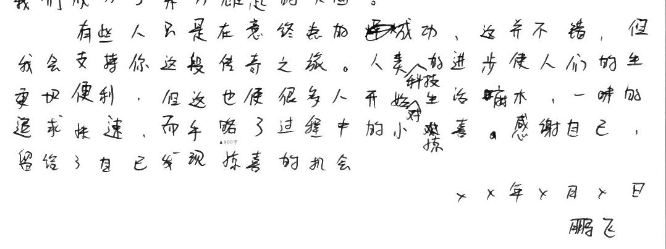 我们成功了并
有些人只是在意终点的成功，这并不错，但
我会支持你这段传奇之旅。人类科技的进步使人们的生
更加便利，但这也使很多人开始对生活麻木，一味的
追求快速，而乎略了过程中的小惊喜。感谢自己，
留给了自己发现惊喜的机会
××年×月×日
鹏飞